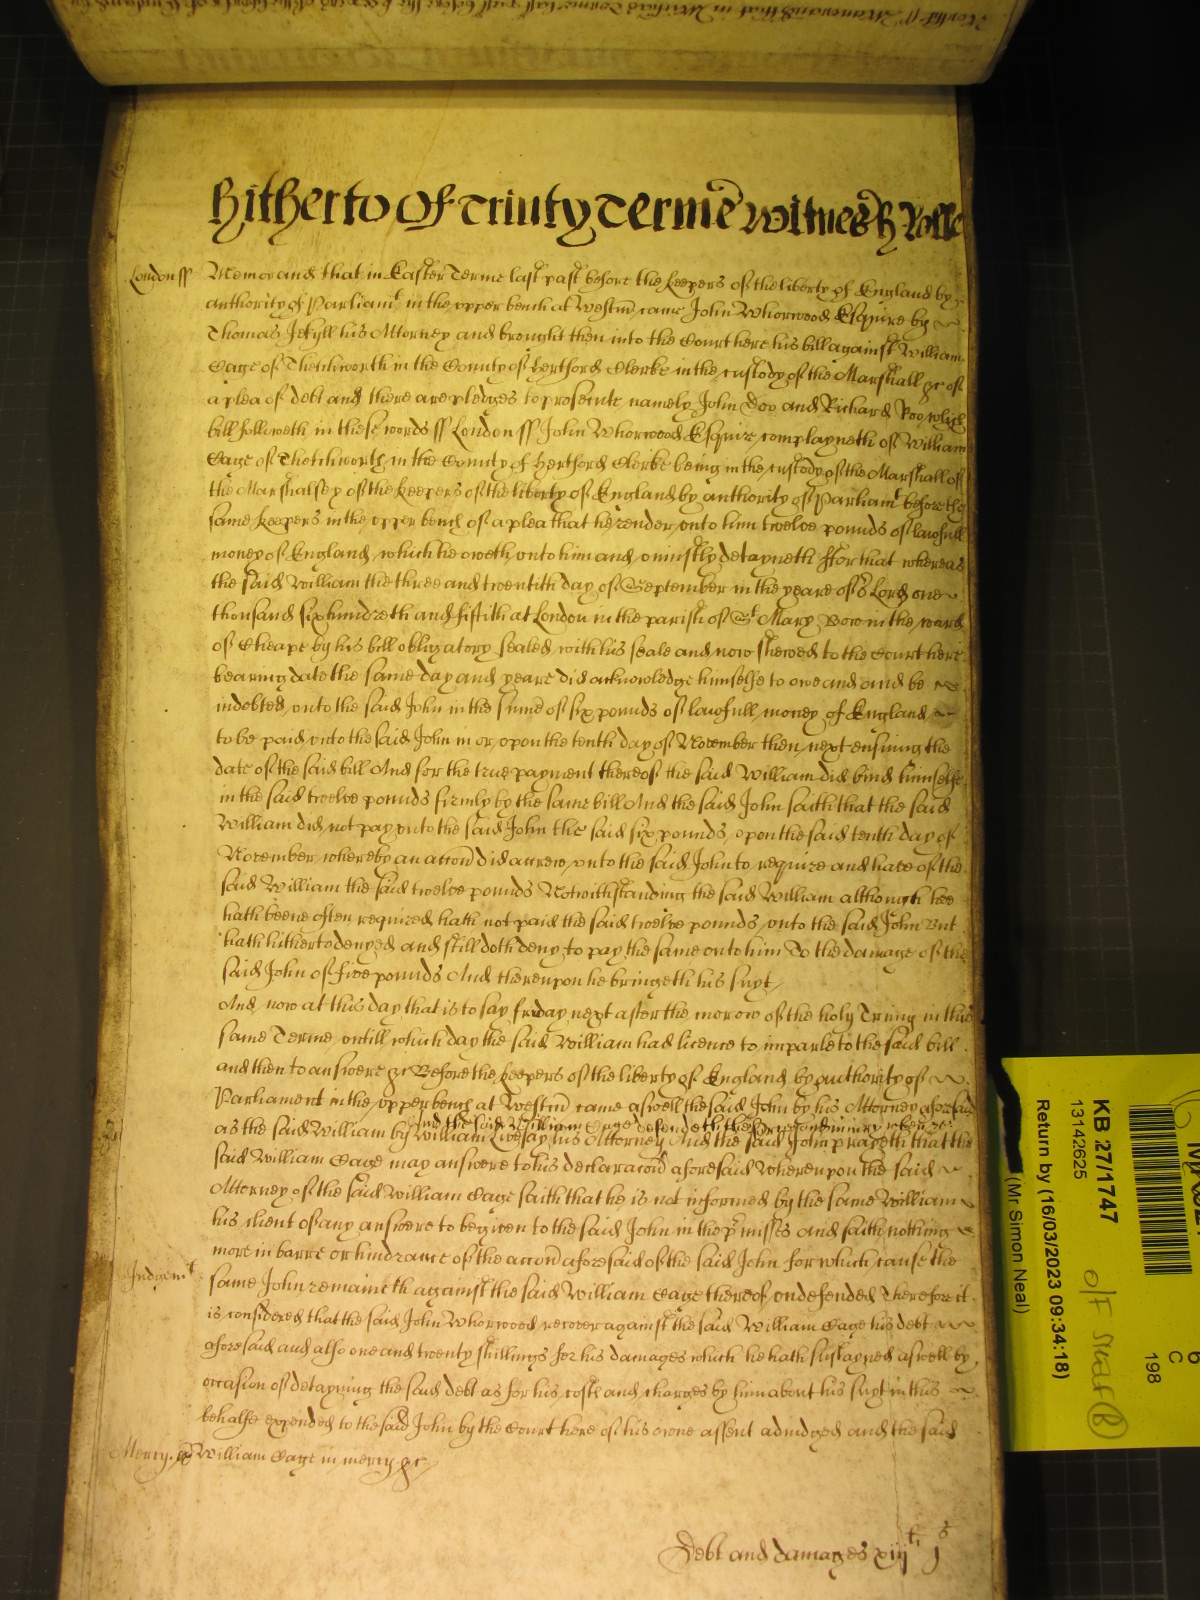 Hitherto Of Trinity Terme Witnes H Rolle
London ss Memorand that in Easter Terme last past before the keepers of the liberty of England by
authority of Parliamt in the upper bench at Westm came John Whorwood Esquire by
Thomas Jekyll his Attorney and brought then into the Court here his bill against William
Cage of Thetchworth in the County of Hertford Clerke in the custody of the Marshall &c of
a plea of debt and there are pledges to prosecute namely John Doo and Richard Roo which
bill followeth in these words ss London ss John Whorwood Esquire complayneth of William
Cage of Thetchworth in the County of Hertford Clerke being in the custody of the Marshall of
the Marshalsey of the keepers of the liberty of England by authority of Parliamt before the
same keepers in the upper bench of a plea that he render unto him twelve pounds of lawfull
money of England which he oweth unto him and uniustly detayneth ffor that whereas
the said William the three and twentith day of September in the yeare of or Lord one
thousand six hundreth and fiftith at London in the parish of St Mary Bow in the ward
of Cheape by his bill obligatory sealed with his seale and now shewed to the Court here
bearing date the same day and yeare did acknowledge himselfe to owe and and be
indebted unto the said John in the sume of six pounds of lawfull money of England
to be paid unto the said John in or upon the tenth day of November then next ensuing the
date of the said bill And for the true payment thereof the said William did bind himselfe
in the said twelve pounds firmly by the same bill And the said John saith that the said
William did not pay unto the said John the said six pounds upon the said tenth day of
November whereby an accon did accrew unto the said John to require and have of the
said William the said twelve pounds Notwithstanding the said William although hee
hath beene often required hath not paid the said twelve pounds unto the said John But
hath hitherto denyed and still doth deny to pay the same unto him To the damage of the
said John of five pounds And thereupon he bringeth his suyt
And now at this day that is to say friday next after the morow of the holy Trinity in this
same Terme untill which day the said William had licence to imparle to the said bill
and then to answere &c Before the keepers of the liberty of England by authority of
Parliament in the upper bench at Westm came aswell the said John by his Attorney aforesaid
And the said William Cage defendeth the force and iniury when &c
as the said William by William Livesay his Attorney And the said John prayeth that the
said William Cage may answere to his declaracon aforesaid Whereupon the said
Attorney of the said William Cage saith that he is not informed by the same William
his client of any answere to be given to the said John in the pmisses and saith nothing
more in barre or hindrance of the accon aforesaid of the said John for which cause the
Judgemt same John remaineth against the said William Cage thereof undefended Therefore it
is considered that the said John Whorwood recover against the said William Cage his debt
aforesaid and also one and twenty shillings for his damages which he hath sustayned aswell by
occasion of detayning the said debt as for his costs and charges by him about his suyt in this
behalfe expended to the said John by the Court here of his owne assent adiudged and the said
Mercy. William Cage in mercy &c
Debt and damages xiijl js
KB 27/1747
13142625
Return by (16/03/2023 09:34:18)
(Mr Simon Neal)
C
198